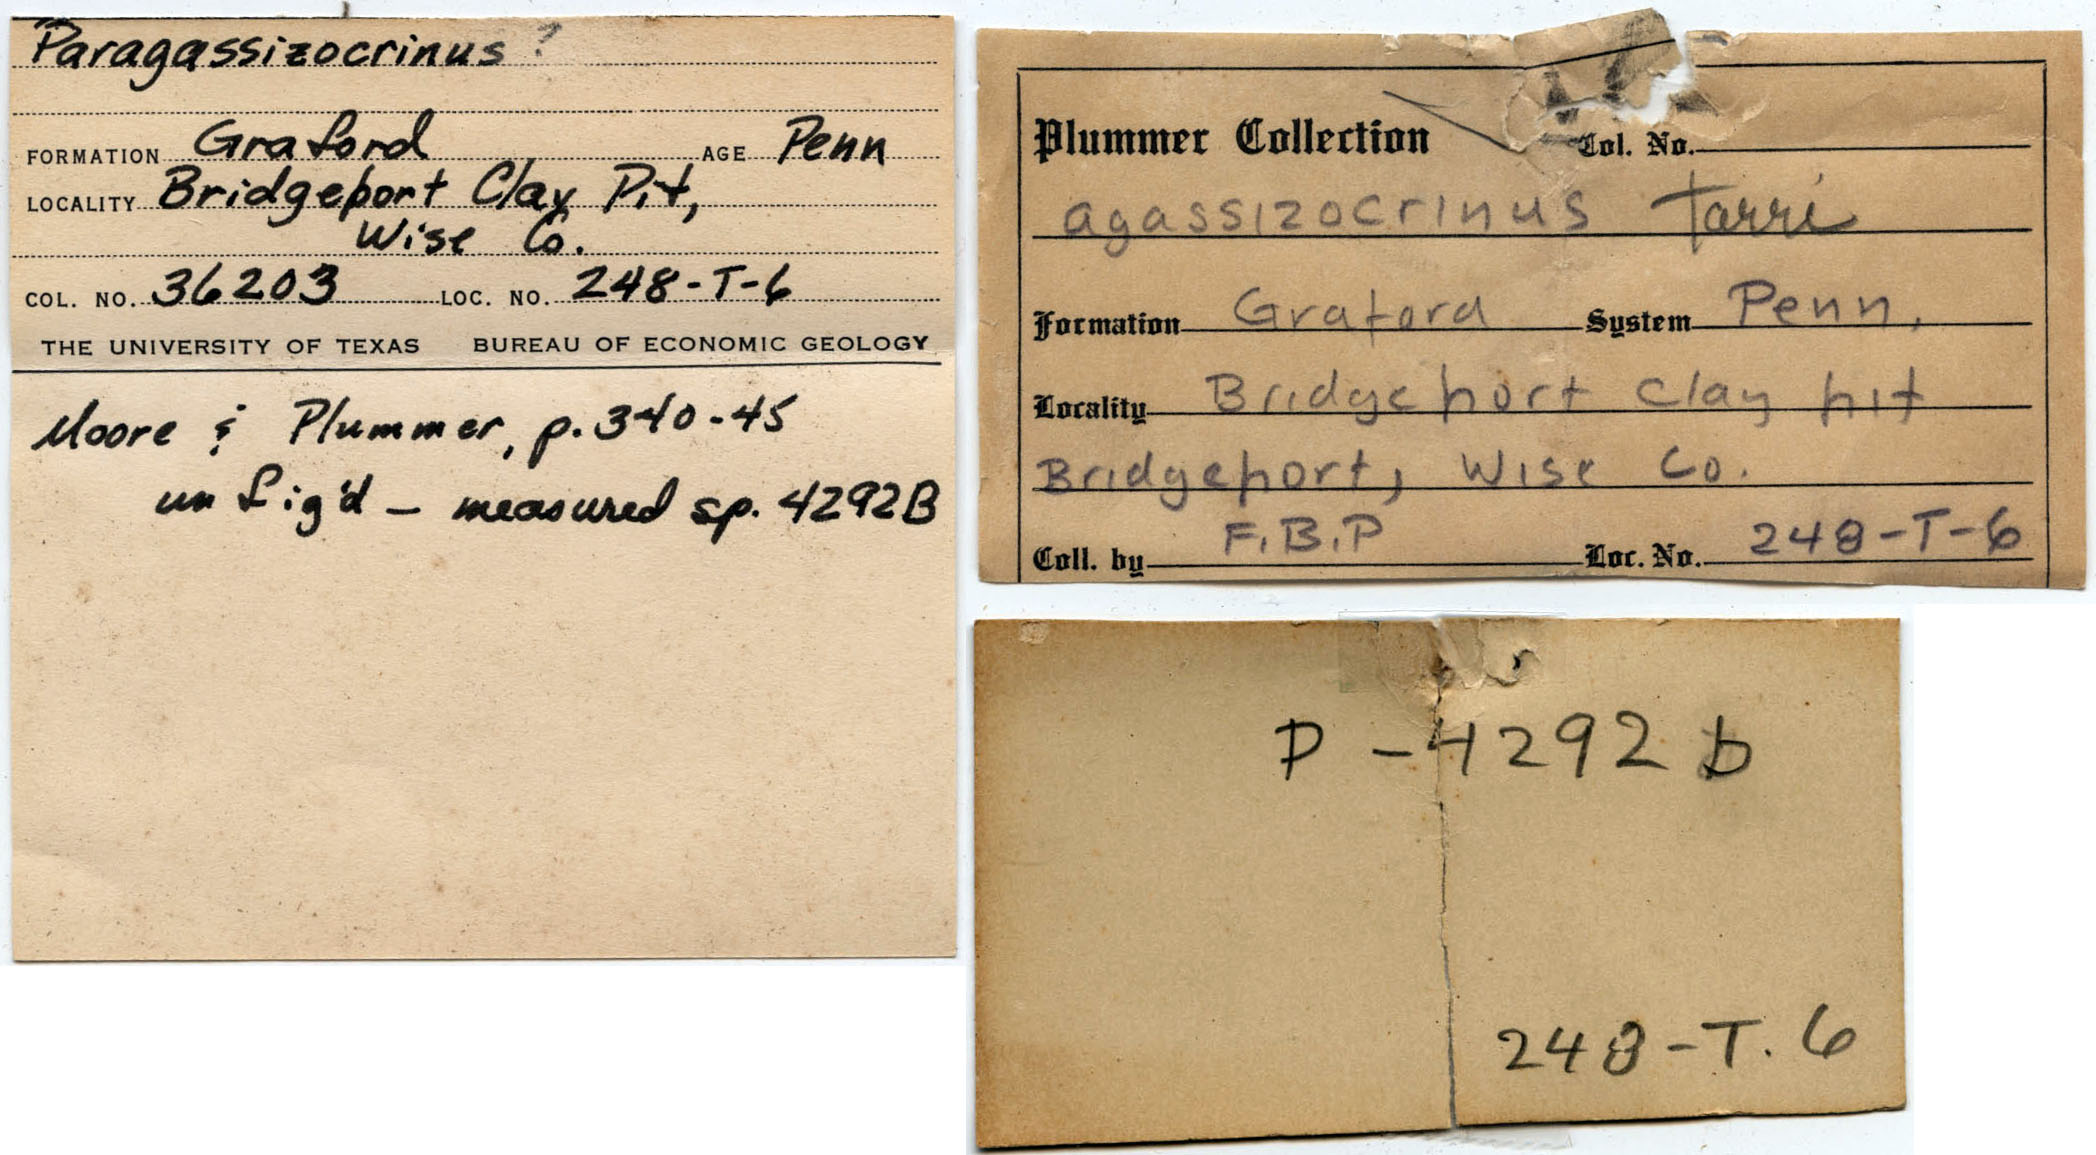 Paragassizocrinus ?
FORMATION Graford AGE Penn
LOCALITY Bridgeport Clay Pit,
Wise Co.
COL. NO. 36203 LOC. NO. 248-T-6
THE UNIVERSITY OF TEXAS BUREAU OF ECONOMIC GEOLOGY
Moore & Plummer, p. 340-45
unfig'd - measured sp. 4292B
Plummer Collection Col. No.
agassizocrinus tarri
Formation Graford System Penn.
Locality Bridgeport Clay pit
Bridgeport, Wise Co.
Coll. by F.B.P Loc. No. 248-T-6
P-4292 b
248-T.6